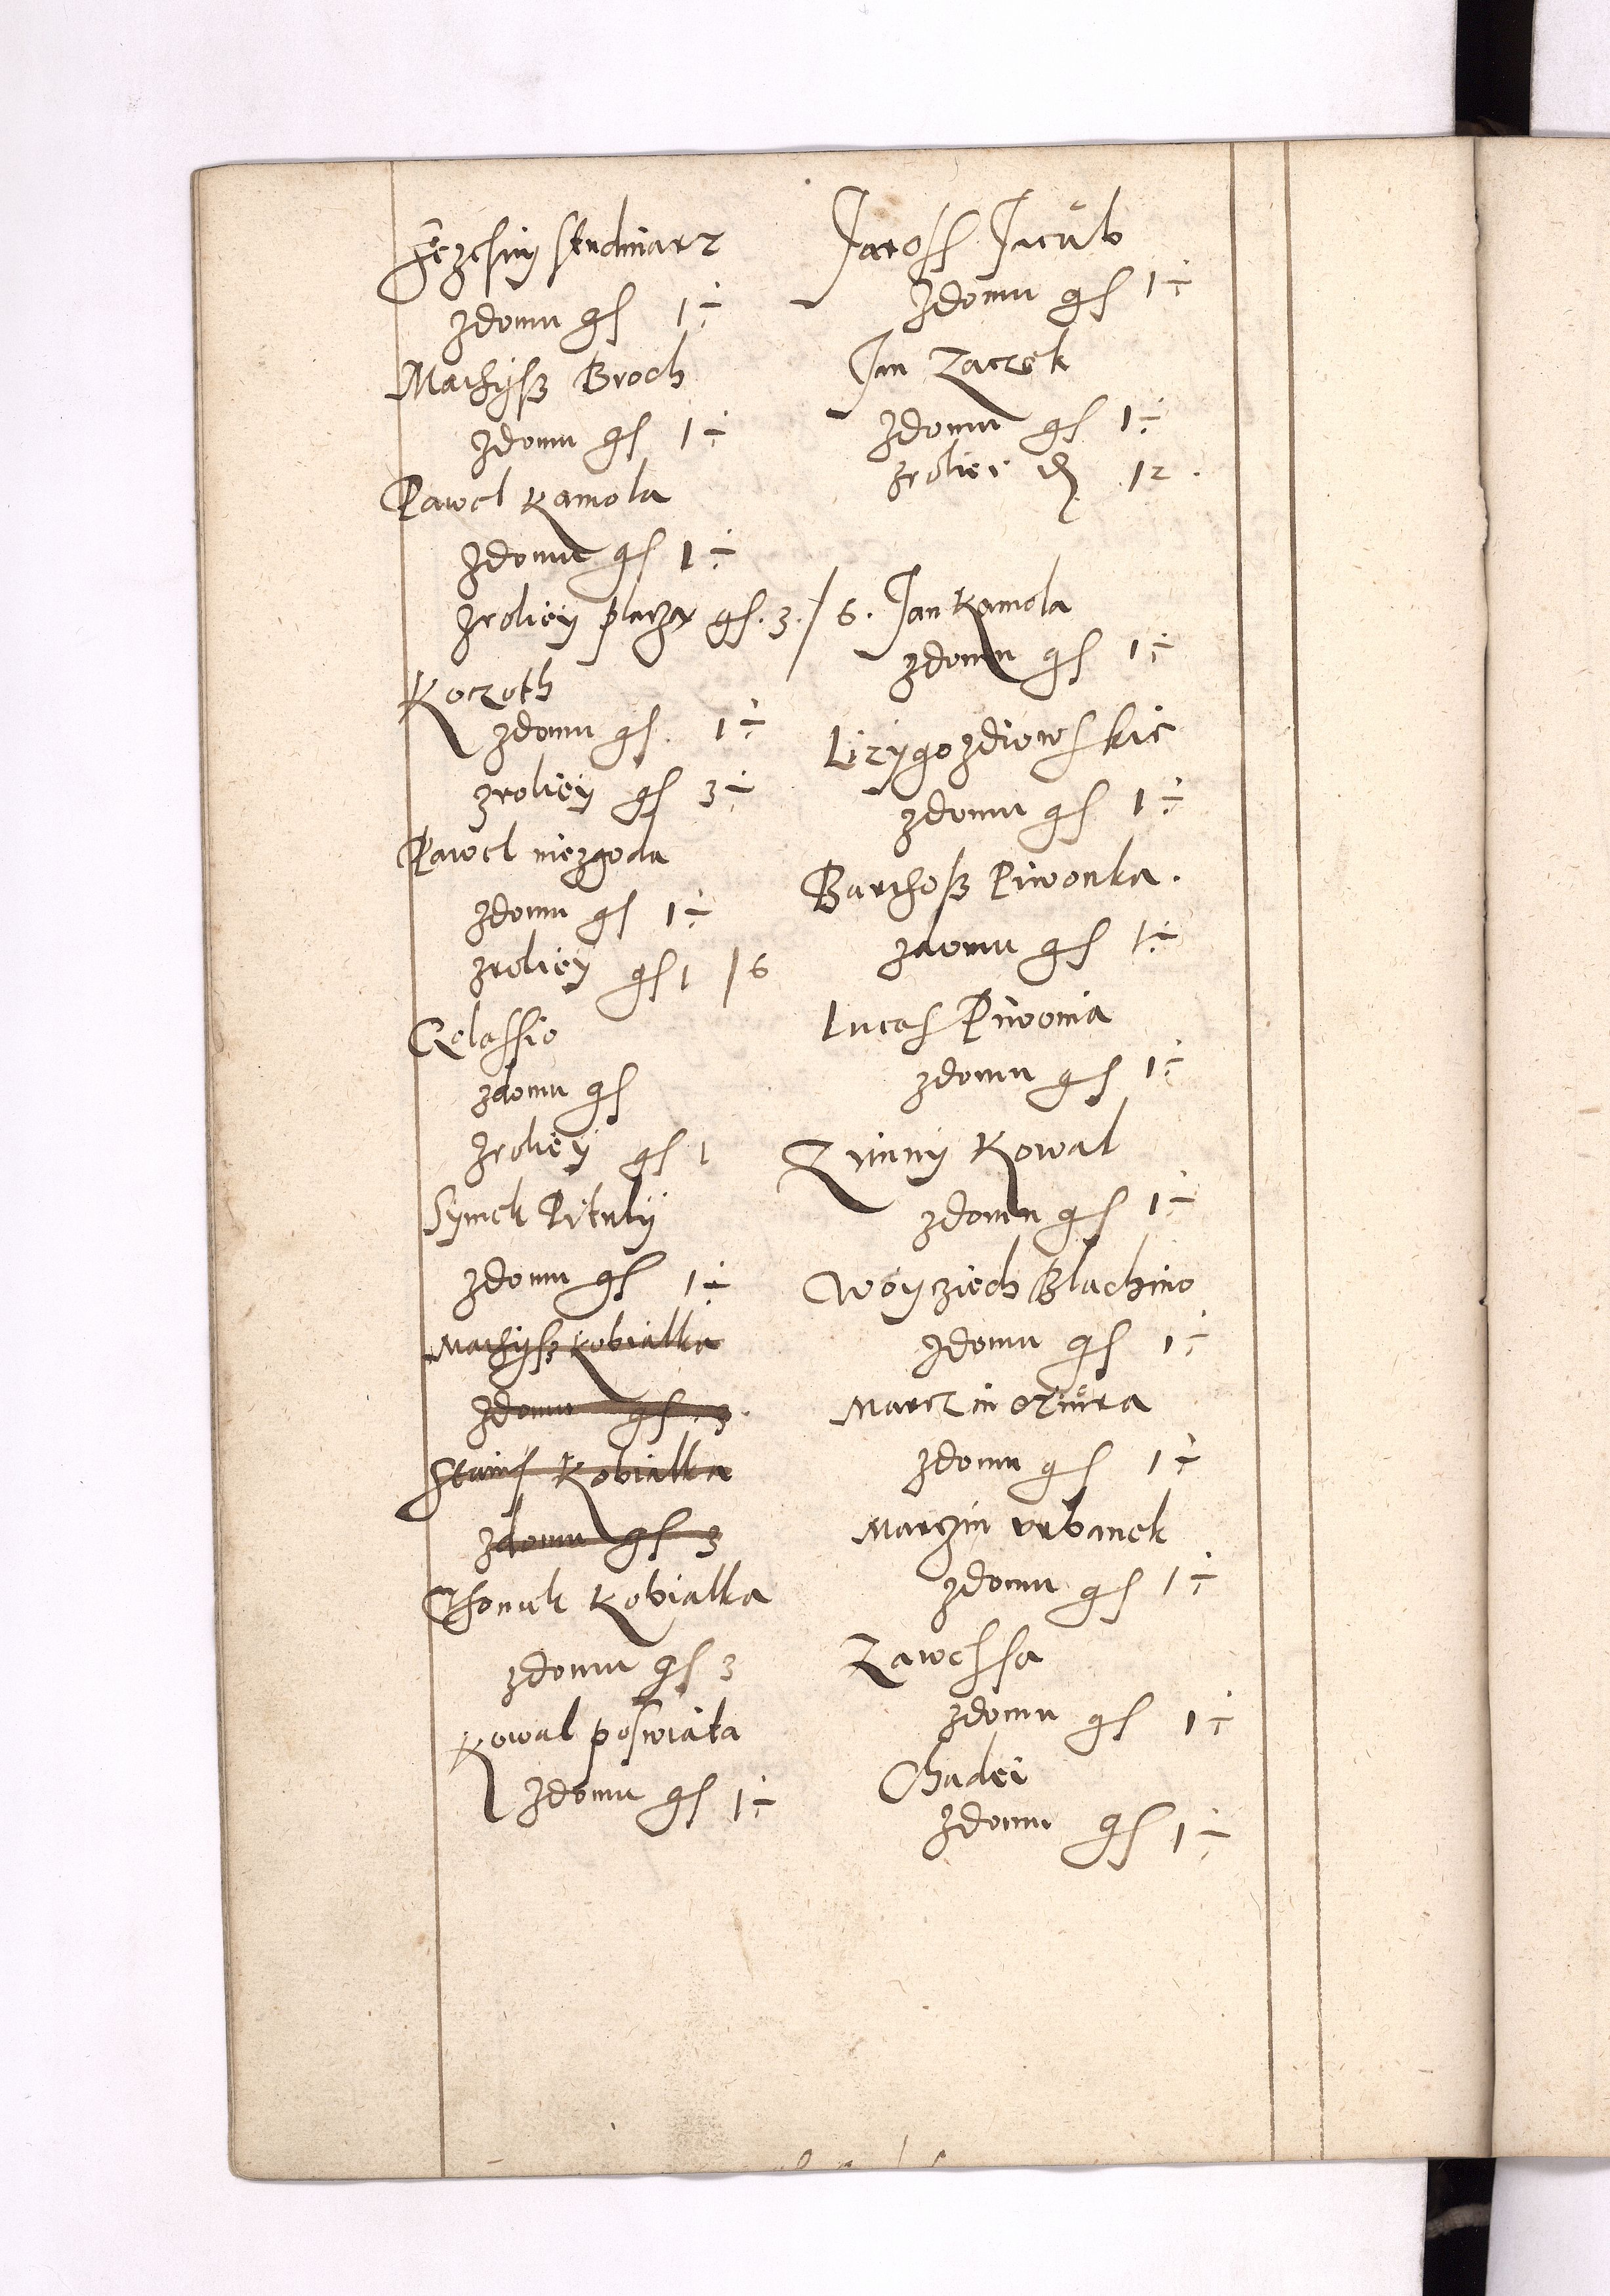 studniarz
zdomu gs 1 ÷
Mathyss Broch
zdomu gs 1 ÷
Pawel Kamola
zdomu gs 1 ÷
zroliey placza gs. 3. / 6.
Koczoth
zdomu gs. 1 ÷
zroliey gs 3 ÷
Pawel niezgoda
zdomu gs 1 ÷
zroliey gs 1 / 6
zdomu gs
zroliey gs 1
Symek Pituly
zdomu gs 1 ÷
Mathyss Kobialka
zdomu gs 3.
Stanis Kobialka
zdomu gs 3
Thomek Kobialka
zdomu gs 3
Kowal poswiata
zdomu gs 1 ÷
Jaross Jacub
zdomu gs 1 ÷
Jan Zaczek
zdomu gs 1 ÷
zroliei 12.
Jan Kamola
zdomu gs 1 ÷
Lizygozdiowskie
zdomu gs 1 ÷
Barthoss Piwonka.
zdomu gs 1 ÷
Lucas Piwonia
zdomu gs 1 ÷
Zimny Kowal
zdomu gs 1 ÷
Woyziech Blachino
zdomu gs 1 ÷
Marczin
zdomu gs 1 ÷
Marczin vrbanek
zdomu gs 1 ÷
Zawessa
zdomu gs 1 ÷
Chadei
zdomu gs 1 ÷